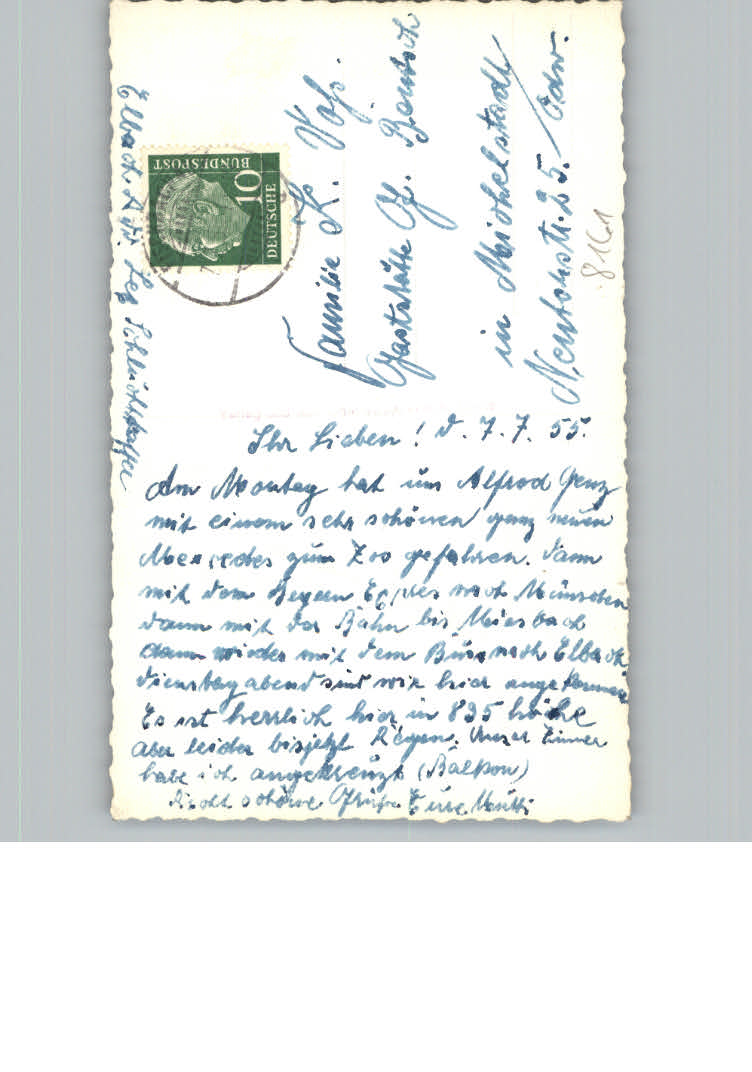 Ihr Lieben! d. 7.7.55.
Am Montag hat uns Alfred Genz
mit einem sehr schönen ganz neuen
Mercedes zum Zoo gefahren. dann
mit dem nach München
dann mit der Bahn bis Miesbach
dann wieder mit dem Bus nach Elbach
dienstag abend sind wir hier angekommen
Es ist herrlich hier in 835 höhe
aber leider bisjetzt Regen. Unser Zimmer
habe ich angekreuzt (Balkon)
schöne Grüße Eure Mutti
Familie K.
Gaststätte
in Michelstadt/
Odw.
Elbach
DEUTSCHE
BUNDESPOST
10
8161